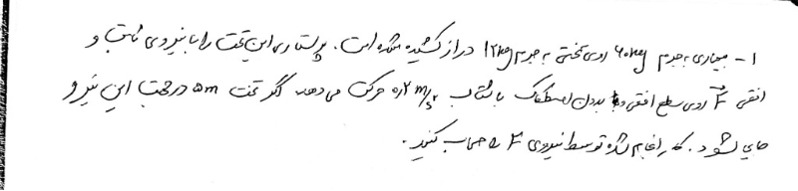 ۱- بیماری به جرم ۶۰kg روی تختی به جرم ۱۲kg دراز کشیده شده است. پرستاری این تخت را با نیروی ثابت و
افقی F روی سطح افقی و بدون اصطکاک با شتاب ۰٫۲ m/s² حرکت می دهد. اگر تخت ۵m در جهت این نیرو
جابجا شود. کار انجام شده توسط نیروی F را حساب کنید.